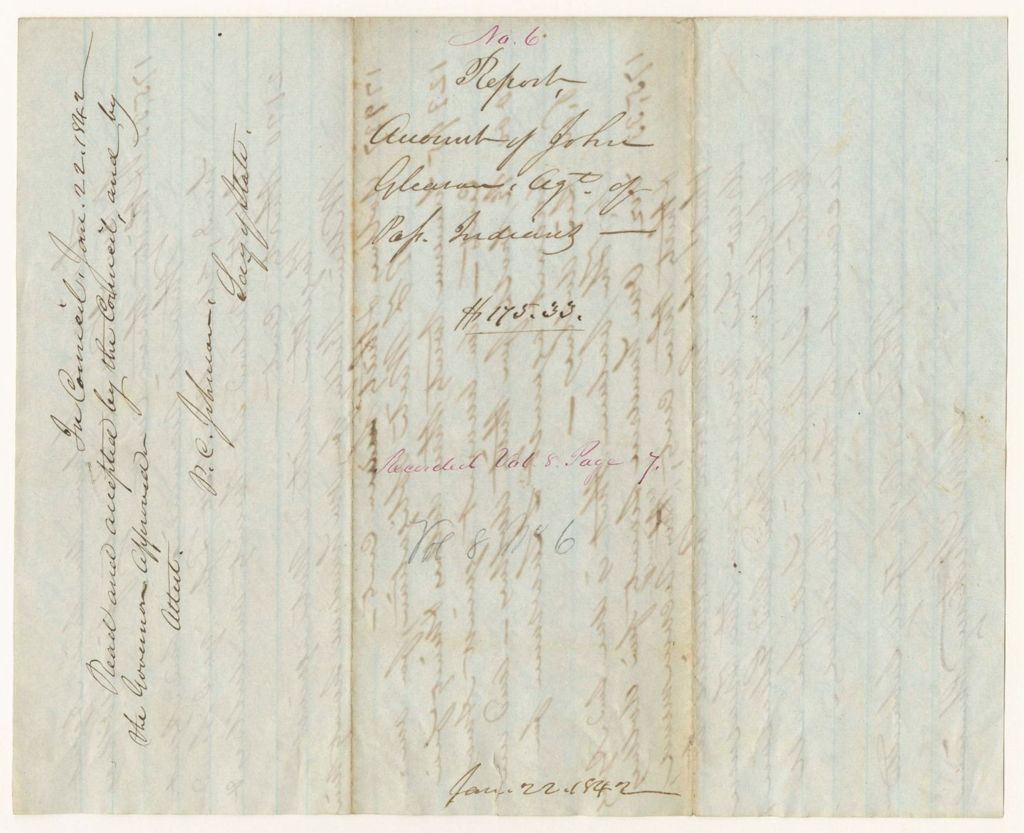 In Council, Jan. 22. 1842
Read and accepted by the Council, and by
the Governor approved
Attest.
P. C. Johnson,
Secy of State.
No. 6
Report,
Account of John
Gleason, Agt. of
Pass. Indians —
$175.33.
Recorded Vol. 8. Page 7.
Vol 8 No 6
Jan. 22. 1842